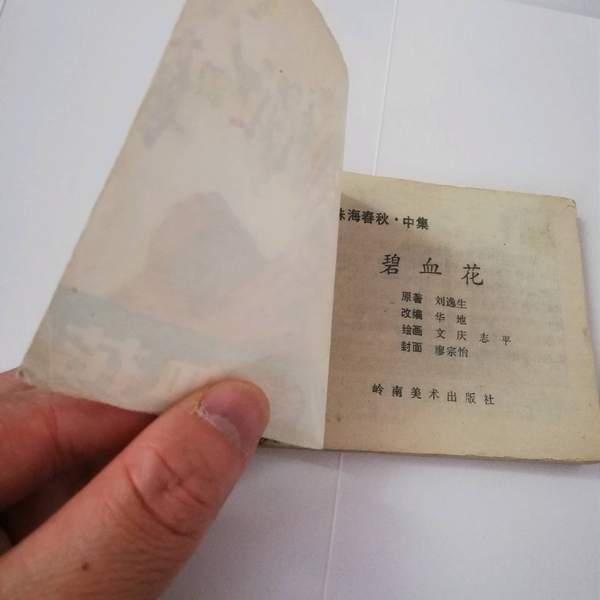 珠海春秋·中集
碧血花
原著 刘逸生
改编 华地
绘画 文庆 志平
封面 廖宗怡
岭南美术出版社